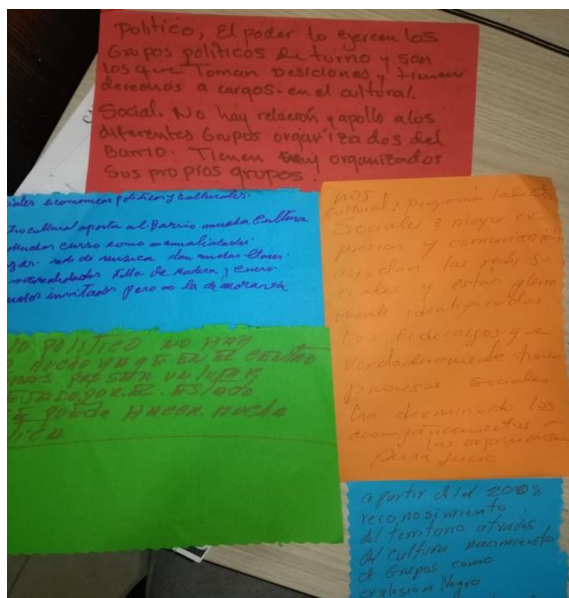 Politico, El poder lo ejercen los
Grupos politicos de turno y son
los que Toman Desiciones y tienen
derechos a cargos. en el cultural.
Social. No hay relación y apollo a los
diferentes Grupos organizados del
Barrio. Tienen organizados
Sus propios grupos.
iales Economicos politicos y culturales.
tro cultural aporta al Barrio mucha Cultura
muchos curso como manualidades.
red de musica dan muchas Clases.
manualidades Talla de Madera y Cuero.
invitados pero no la demoransa
IO POLITICO NO HAN
MUCHO YA QE EN EL CENTRO
MAS POR SER UN LUGAR
EJADO POR EL ESTADO
SE PUEDE HACER MUCHO
TICA
nos
cultural:
Sociales y mayor ex
presion y comunicación
las redes so
ciales y están plena
mente identificados
Los liderazgos que
verdaderamente tienen
procesos sociales
ha desminuido los
acompañamientos a
las organizaciones
apartir del 2008
reconosimiento
del territorio atraves
del cultura nacimiento
de Grupos como
explosion Negra